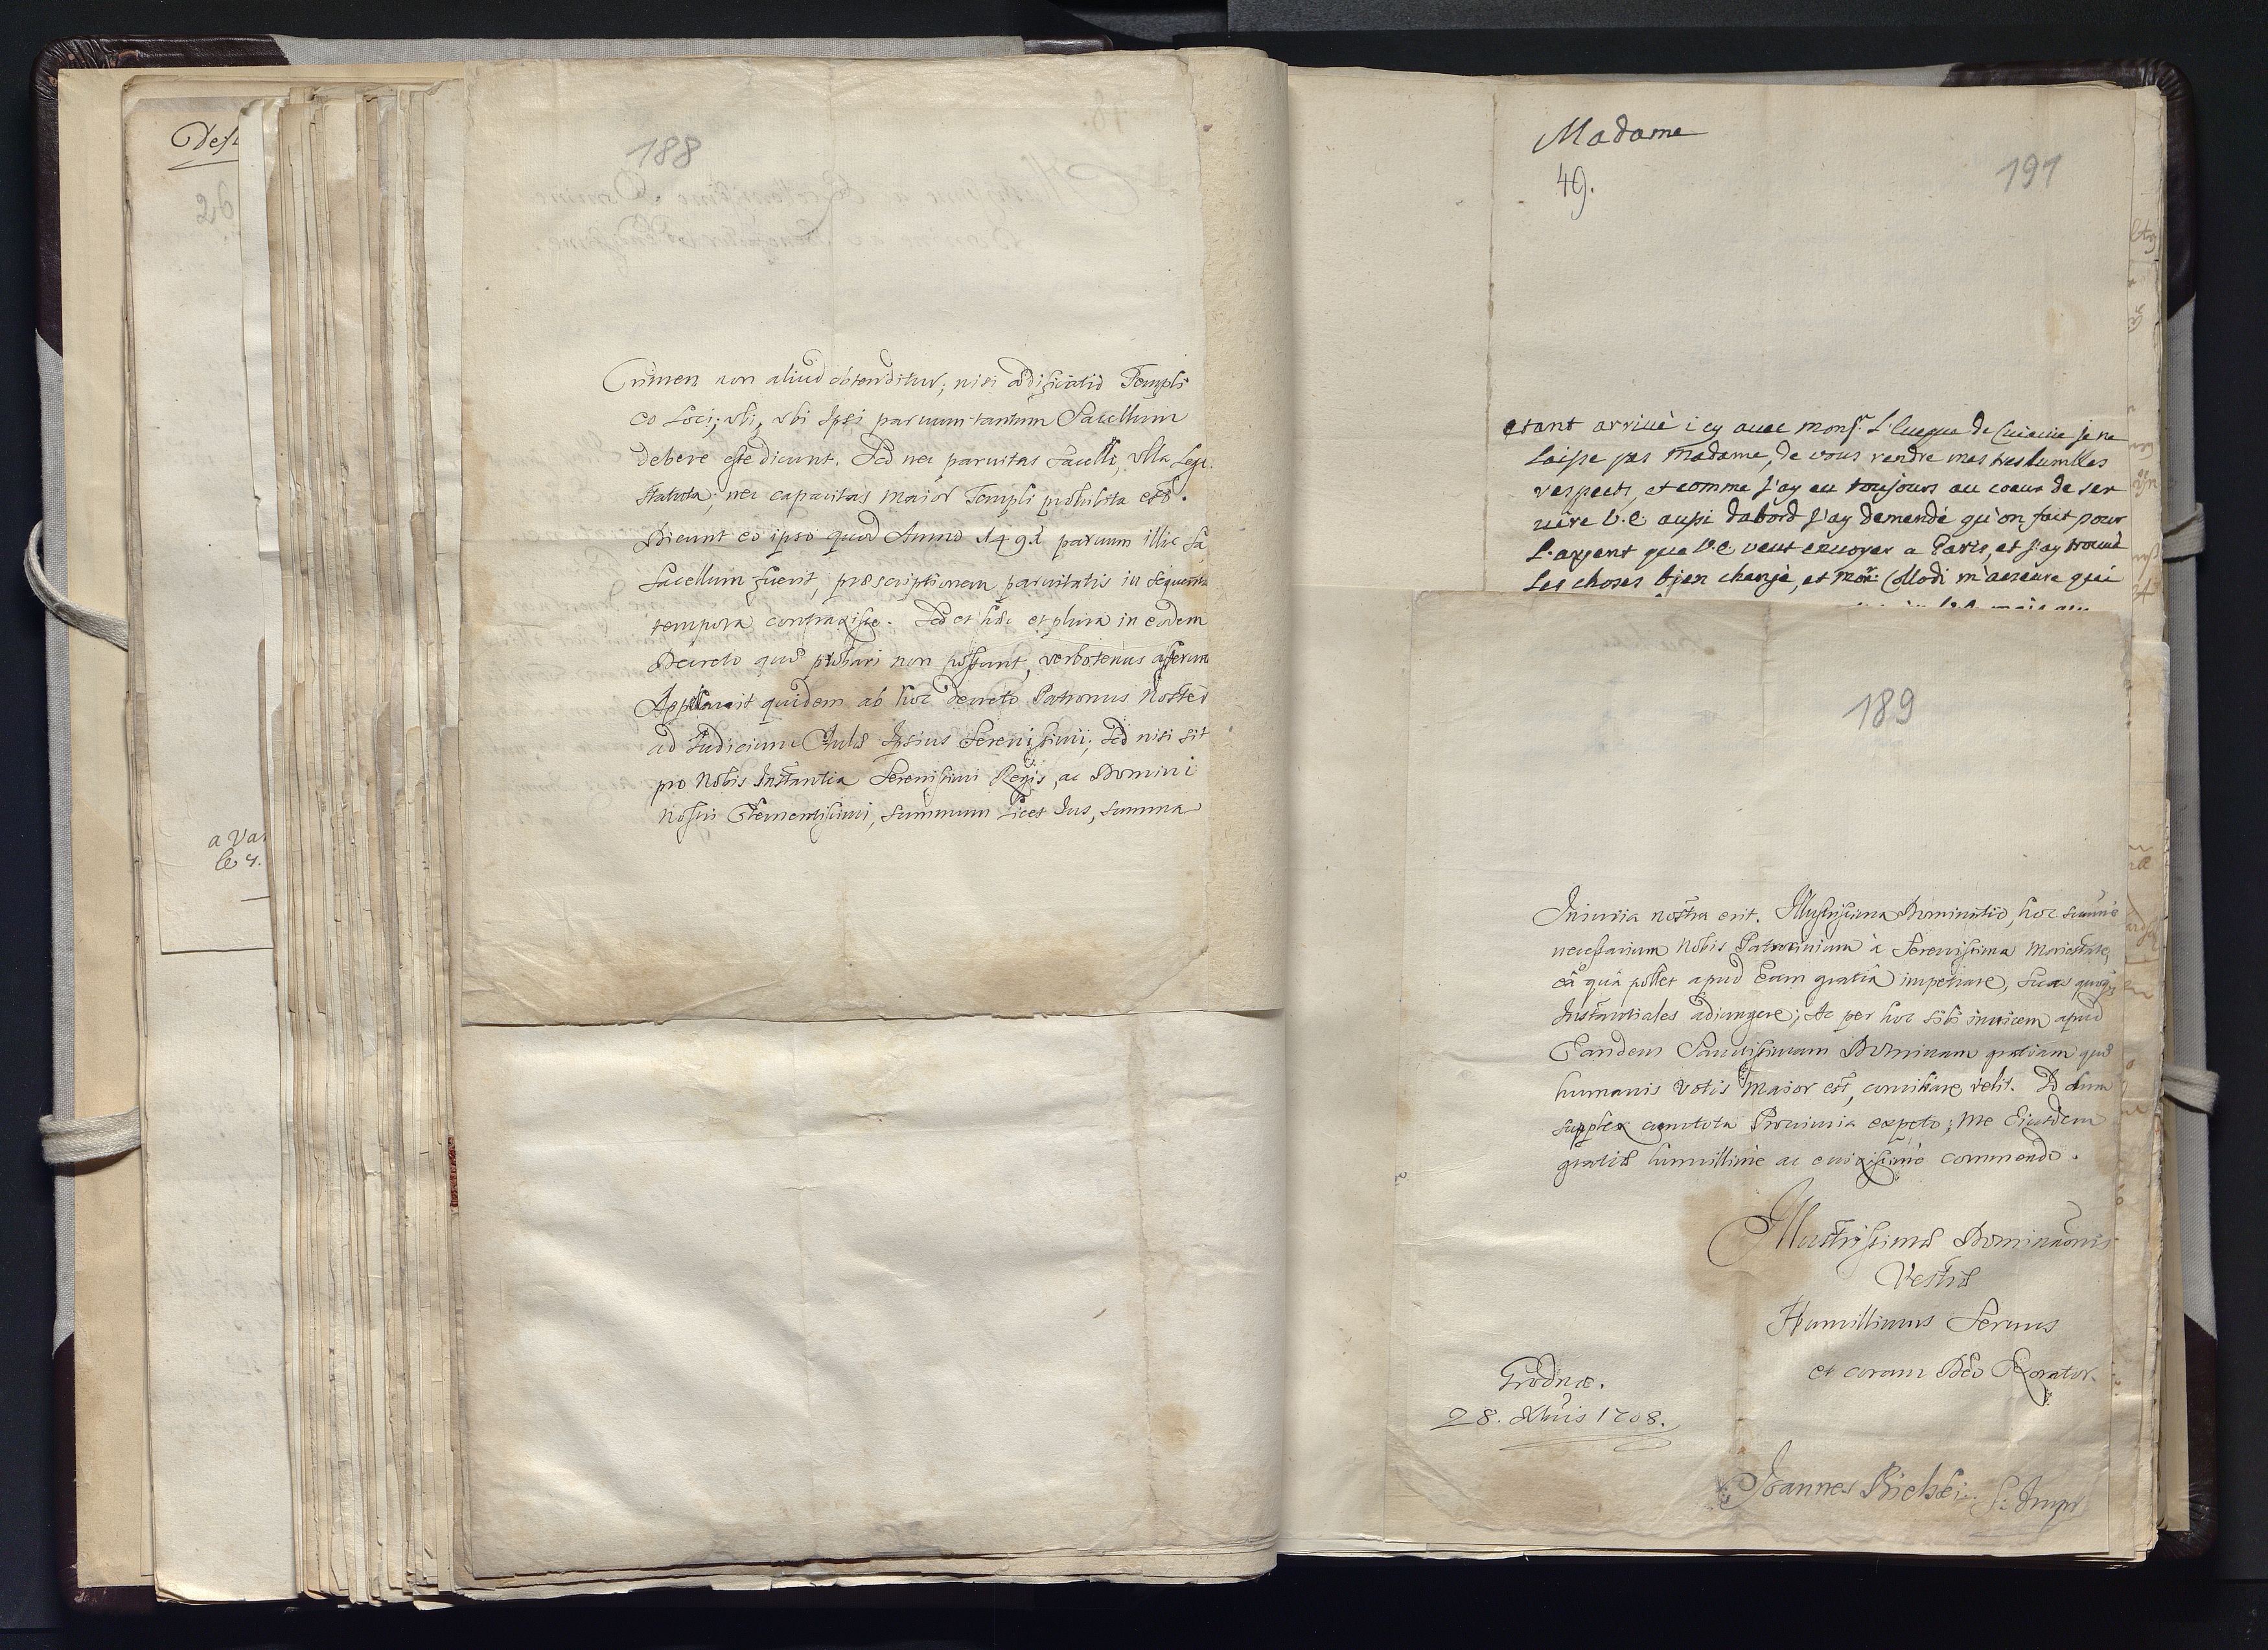 188
Crimen non aliud obtenditur; nisi ædificatio Templi
eo Loci; ubi, ubi Ipsi parvum tantum Sacellum
debere esse dicunt. Sed nec parvitas Sacelli, ulla Lege
statuta; nec capacitas maior Templi prohibita est.
Dicunt eo ipso quod Anno 1491 parvum illic
Sacellum fuerit, præscriptionem parvitatis in sequentia
tempora contraxisse. Sed et hæc et plura in eodem
Decreto quæ probari non possunt, verbotenus
Appellavit quidem ab hoc decreto Patronus Noster
ad Iudicium Aulæ Ipsius Serenissimi; sed nisi sit
pro Nobis Instantia Serenissimi Regis, ac Domini
Nostri Clementissimi, summum licet Ius, summa
Madame
49.
191
etant arrivè icy avec mons.r L'Eveque de Cuiavie je ne
Laisse pas Madame, de vous rendre mes tres humbles
respects, et comme j'ay eu toujours au coeur de ser
vire V.E aussi dabord j'ay demandé qu'on fait pour
L'argent que V.E veut envoyer a Paris, et j'ay trouvè
Les choses bien changè, et mor: Collodi m'asseure
189
Iniuria nostra erit. Illustrissima Dominatio, hoc summè
necessarium Nobis Patrocinium à Serenissima Maiestate,
eâ quâ pollet apud Eam gratiâ impetrare, suas quoq;
Instantiales adiungere; Ac per hoc sibi invicem apud
Eandem Sanctissimam Dominam gratiam quæ
humanis votis maior est, conciliare velit. Id dum
supplex cum tota Provincia expeto; Me Eiusdem
gratiæ humillimè ac enixissimè commendo.
Illustrissimæ Dominationis
Vestræ
Humillimus Servus
et coram Deo Exorator
Grodnæ.
28. Xbris 1708.
Joannes